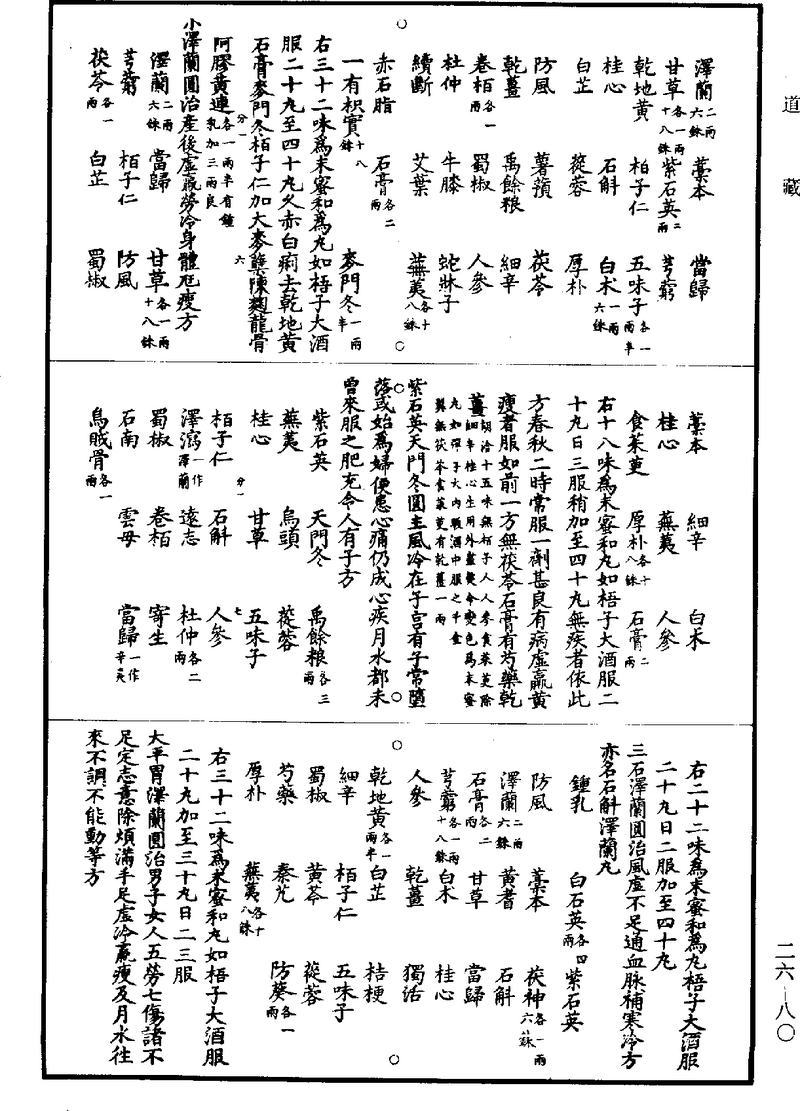 道藏
澤蘭二兩六銖 藁本 當歸
甘草各一兩十八銖 紫石英二兩 芎藭
乾地黃 柏子仁 五味子各一兩半
桂心 石斛 白朮一兩六銖
白芷 蓯蓉 厚朴
防風 薯蕷 茯苓
乾薑 禹餘粮 細辛
卷栢各一兩 蜀椒 人參
杜仲 牛膝 蛇牀子
續斷 艾葉 蕪荑各十八銖
赤石脂 石膏各二兩
一有枳實十八銖 麥門冬一兩半
右三十二味為末蜜和為丸如梧子大酒
服二十丸至四十丸久赤白痢去乾地黃
石膏麥門冬栢子仁加大麥糵陳麴龍骨
阿膠黃連各一兩半有鍾乳加三兩良
小澤蘭圓治產後虛羸勞冷身體尫瘦方
澤蘭二兩六銖 當歸 甘草各一兩十八銖
芎藭 栢子仁 防風
茯苓各一兩 白芷 蜀椒
藁本 細辛 白朮
桂心 蕪荑 人參
食茱萸 厚朴各十八銖 石膏二兩
右十八味為末蜜和丸如梧子大酒服二
十丸日三服稍加至四十丸無疾者依此
方春秋二時常服一劑甚良有病虛羸黃
瘦者服如前一方無茯苓石膏有芍藥乾
薑
紫石英天門冬圓主風冷在子宮有子常墮
落或始為婦便患心痛仍成心疾月水都未
曾來服之肥充令人有子方
紫石英 天門冬 禹餘粮各三兩
蕪荑 烏頭 蓯蓉
桂心 甘草 五味子
栢子仁 石斛 人參
澤瀉一作澤蘭 遠志 杜仲各二兩
蜀椒 卷栢 寄生
石南 雲母 當歸一作辛夷
烏賊骨各一兩
右二十二味為末蜜和為丸梧子大酒服
二十丸日二服加至四十丸
三石澤蘭圓治風虛不足通血脉補寒冷方
亦名石斛澤蘭丸
鍾乳 白石英各四兩 紫石英
防風 藁本 茯神各一兩六銖
澤蘭二兩六銖 黃耆 石斛
石膏各二兩 甘草 當歸
芎藭各一兩十八銖 白朮 桂心
人參 乾薑 獨活
乾地黃各一兩半 白芷 桔梗
細辛 栢子仁 五味子
蜀椒 黃芩 蓯蓉
芍藥 秦艽 防葵各一兩
厚朴 蕪荑各十八銖
右三十二味為末蜜和丸如梧子大酒服
二十丸加至三十丸日二三服
大平胃澤蘭圓治男子女人五勞七傷諸不
足定志意除煩滿手足虛冷羸瘦及月水往
來不調不能動等方
二六—八〇